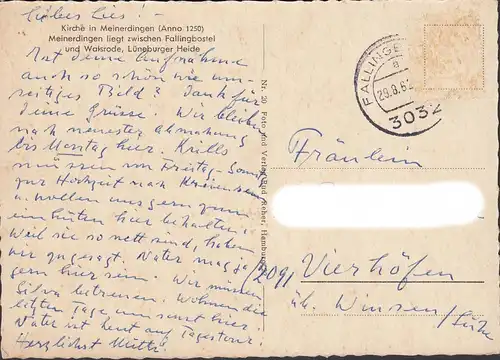 Liebes Lies!
Kirche in Meinerdingen (Anno 1250)
Meinerdingen liegt zwischen Fallingbostel
und Walsrode, Lüneburger Heide
Hat deine Aufnahme
auch so schön wie um-
seitiges Bild? Dank für
deine Grüsse. Wir bleiben
nach neuester abmahung
bis Montag hier. Krills
müssen von Freitag-Sonnt.
zur Hochzeit nach
u. wollen uns gern zum
einhüten hier behalten.
Weil sie so nett sind, haben
wir zugesagt. Vater mag ja
gern hier sein. Wir müssen
Silva betreuen. Wohnen die
letzten Tage, um sonst hier
Vater ist heut auf Tagestour.
Herzlichst Mutti
Nr. 20 Foto und Verlag Hamburg
FALLINGB
a
29.8.6
3032
Fräulein
2091 Vierhöfen
üb. Winsen/Luhe